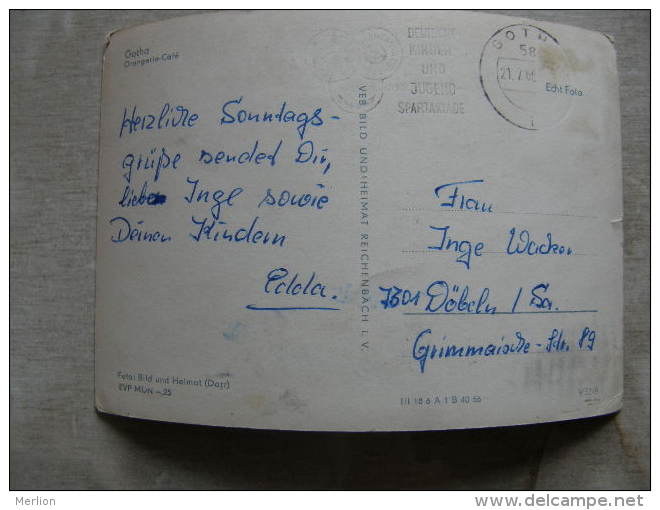 Gotha
Orangerie-Café
DEUTSCHE
KINDER-
UND
JUGEND
SPARTAKIADE
GOTHA
58
21.7.66
Echt Foto
Herzliche Sonntags-
grüße sendet Dir,
liebe Inge sowie
Deinen Kindern
Edda.
VEB BILD UND HEIMAT REICHENBACH I. V.
Frau
Inge Wacker
7301 Döbeln / Sa.
Grimmaische-Str. 89
Foto: Bild und Heimat (Darr)
EVP MDN -,25
III 18 6 A 1 B 40 66
Merlion
www.delcampe.net